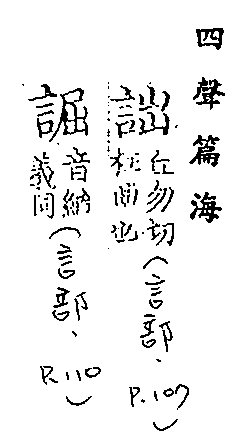 四聲篇海
詘 丘勿切
枉曲也
(言部、P.107)
誳 音納
義同
(言部、P.110)